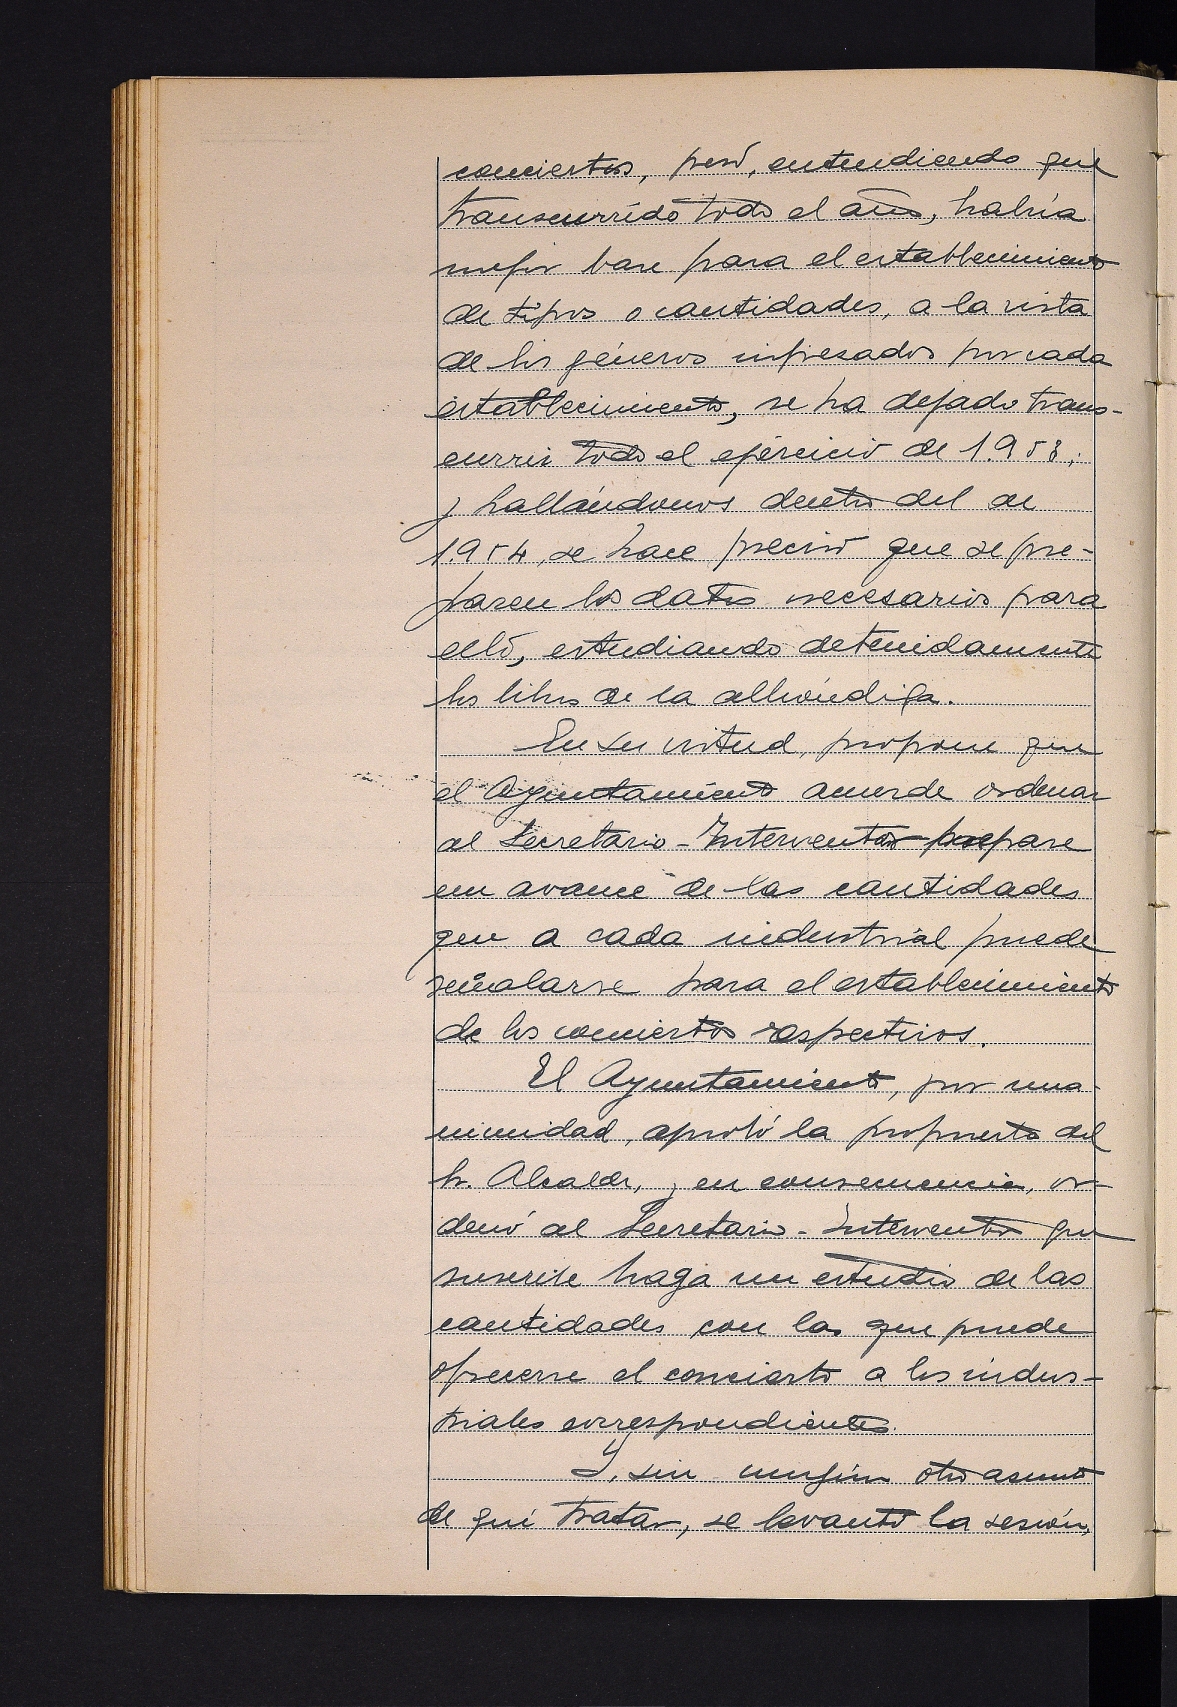 conciertos, pero, entendiendo que
transcurrido todo el año, habría
mejor base para el establecimiento
de tipos o cantidades, a la vista
de los géneros ingresados por cada
establecimiento, se ha dejado trans-
currir todo el ejercicio de 1.953;
y hallándonos dentro del de
1.954, se hace preciso que se pre-
paren los datos necesarios para
ello, estudiando detenidamente
los libros de la alhóndiga.
En su virtud, propone que
el Ayuntamiento acuerde ordenar
al Secretario-Interventor prepare
un avance de las cantidades
que a cada industrial puede
señalarse para el establecimiento
de los conciertos respectivos.
El Ayuntamiento, por una-
nimidad, aprobó la propuesta del
Sr. Alcalde, y en consecuencia, or-
denó al Secretario-Interventor que
suscribe haga un estudio de las
cantidades con las que puede
ofrecerse el concierto a los indus-
triales correspondientes.
Y, sin ningún otro asunto
de qué tratar, se levantó la sesión,